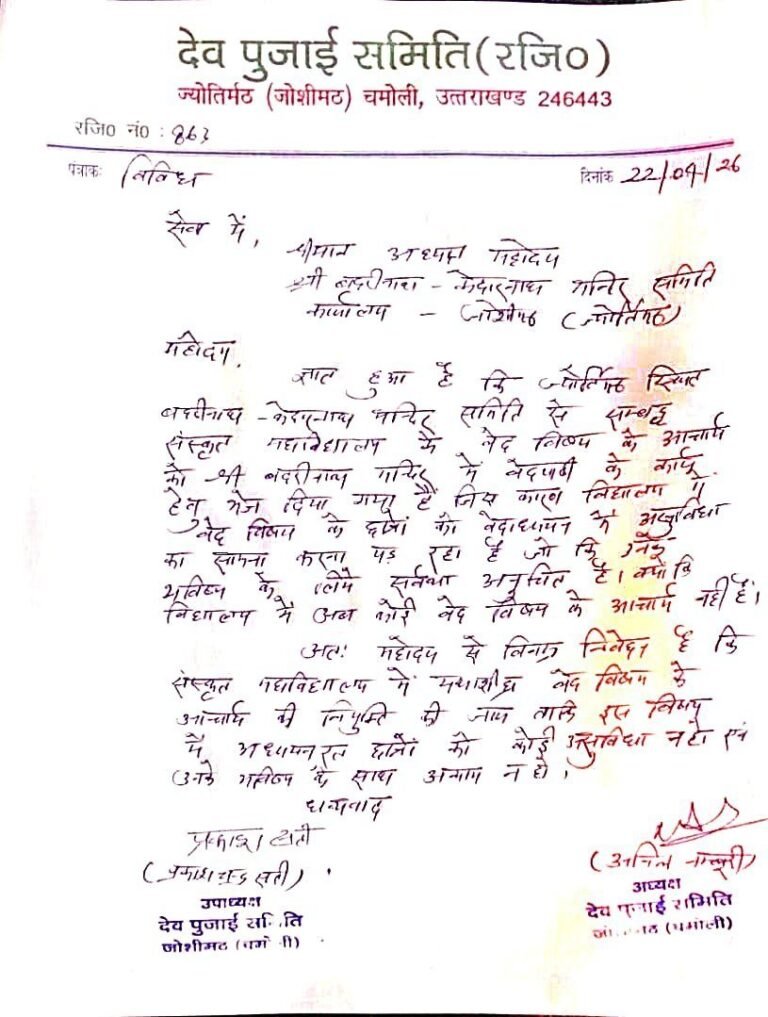 देव पुजाई समिति(रजि०)
ज्योतिर्मठ (जोशीमठ) चमोली, उत्तराखण्ड 246443
रजि० नं० : 863
पत्रांक: विविध
दिनांक 22/04/26
सेवा में,
श्रीमान अध्यक्ष महोदय
श्री बदरीनाथ - केदारनाथ मन्दिर समिति
कार्यालय - जोशीमठ (ज्योर्तिमठ)
महोदय,
ज्ञात हुआ है कि ज्योर्तिमठ स्थित
बदरीनाथ - केदारनाथ मन्दिर समिति से सम्बद्ध
संस्कृत महाविद्यालय के वेद विषय के आचार्य
को श्री बदरीनाथ मन्दिर में वेदपाठी के कार्य
हेतु भेज दिया गया है जिस कारण विद्यालय में
वेद विषय के छात्रों को वेदाध्ययन में असुविधा
का सामना करना पड़ रहा है जो कि उनके
भविष्य के लिये सर्वथा अनुचित है। क्यों कि
विद्यालय में अब कोई वेद विषय के आचार्य नहीं हैं।
अतः महोदय से विनम्र निवेदन है कि
संस्कृत महाविद्यालय में यथाशीघ्र वेद विषय के
आचार्य की नियुक्ति की जाय ताकि इस विषय
में अध्ययनरत छात्रों को कोई असुविधा न हो एवं
उनके भविष्य के साथ अन्याय न हो।
धन्यवाद
प्रकाश सती
(प्रकाश चन्द्र सती)
उपाध्यक्ष
देव पुजाई समिति
जोशीमठ (चमोली)
(अनिल नम्बूरी)
अध्यक्ष
देव पुजाई समिति
जोशीमठ (चमोली)